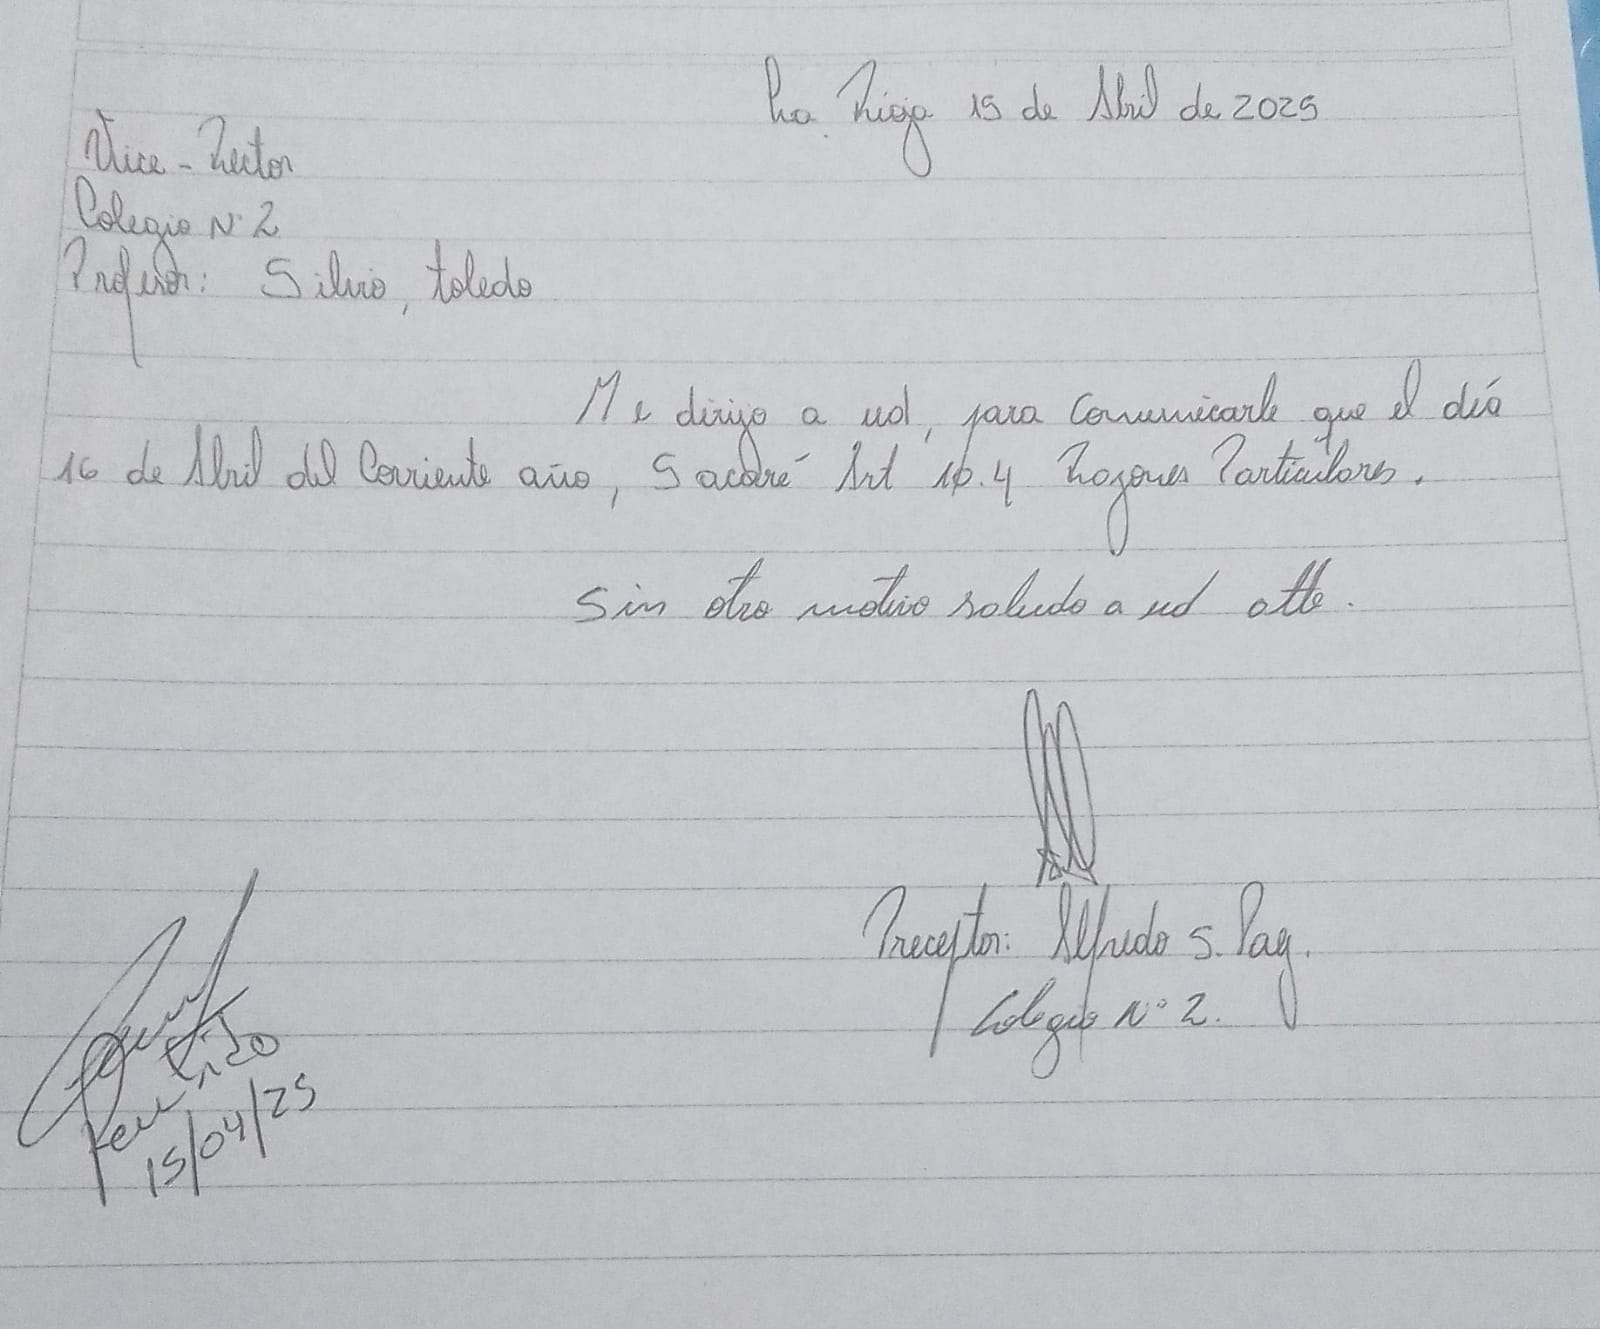 La Rioja 15 de Abril de 2025
Vice-Rector
Colegio N° 2
Profesor: Silvio, toledo
Me dirijo a ud, para Comunicarle que el día
16 de Abril del Corriente año, Sacaré Art 10.4 Razones Particulares.
Sin otro motivo saludo a ud atte.
Preceptor: Alfredo S. Paz.
Colegio N° 2.
15/04/25